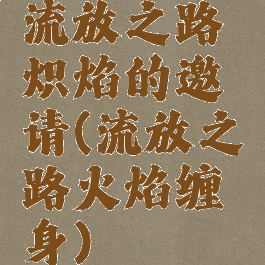 流放之路
炽焰的邀
请(流放之
路火焰缠
身)